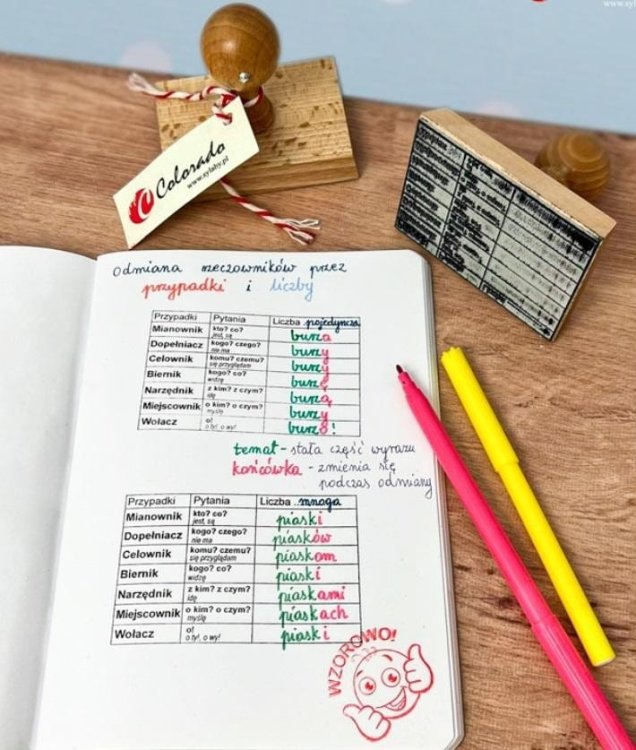 Colorado
www.sylaby.pl
Odmiana rzeczowników przez
przypadki i liczby
Przypadki Pytania Liczba pojedyncza
Mianownik kto? co? burza
jest, są
Dopełniacz kogo? czego? burzy
nie ma
Celownik komu? czemu? burzy
się przyglądam
Biernik kogo? co? burzę
widzę
Narzędnik z kim? z czym? burzą
idę
Miejscownik o kim? o czym? burzy
myślę
Wołacz o! burzo!
o ty!, o wy!
temat - stała część wyrazu
końcówka - zmienia się
podczas odmiany
Przypadki Pytania Liczba mnoga
Mianownik kto? co? piaski
jest, są
Dopełniacz kogo? czego? piasków
nie ma
Celownik komu? czemu? piaskom
się przyglądam
Biernik kogo? co? piaski
widzę
Narzędnik z kim? z czym? piaskami
idę
Miejscownik o kim? o czym? piaskach
myślę
Wołacz o! piaski
o ty!, o wy!
WZOROWO!